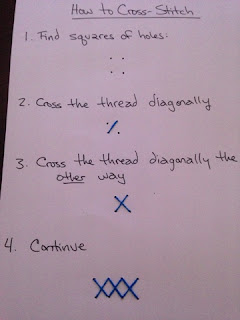 How to Cross-Stitch
1. Find squares of holes:
2. Cross the thread diagonally
3. Cross the thread diagonally the
other way
4. Continue